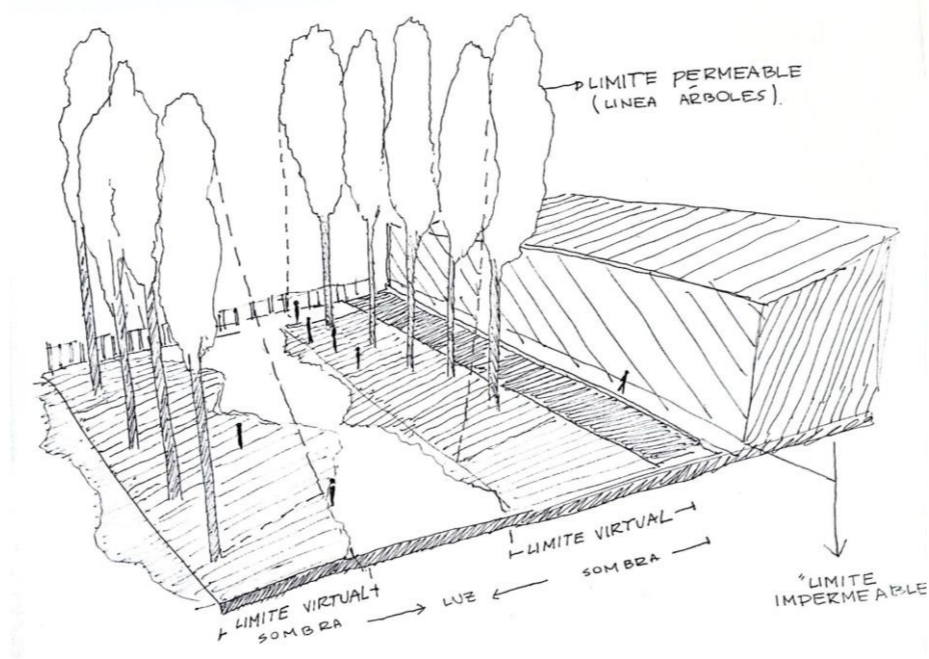 LIMITE PERMEABLE
(LINEA ÁRBOLES).
LIMITE VIRTUAL
SOMBRA
LUZ
LIMITE VIRTUAL
SOMBRA
"LIMITE
IMPERMEABLE